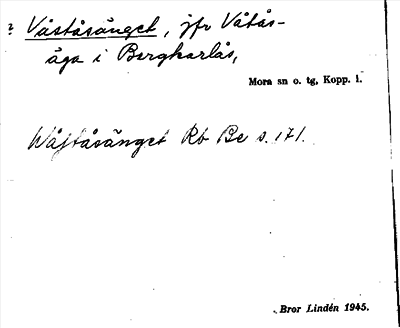 ? Våståsänget, jfr Våtås-
äga i Bergkarlås,
Mora sn o. tg, Kopp. l.
Wåståsänget Rb Bc s. 171.
Bror Lindén 1945.